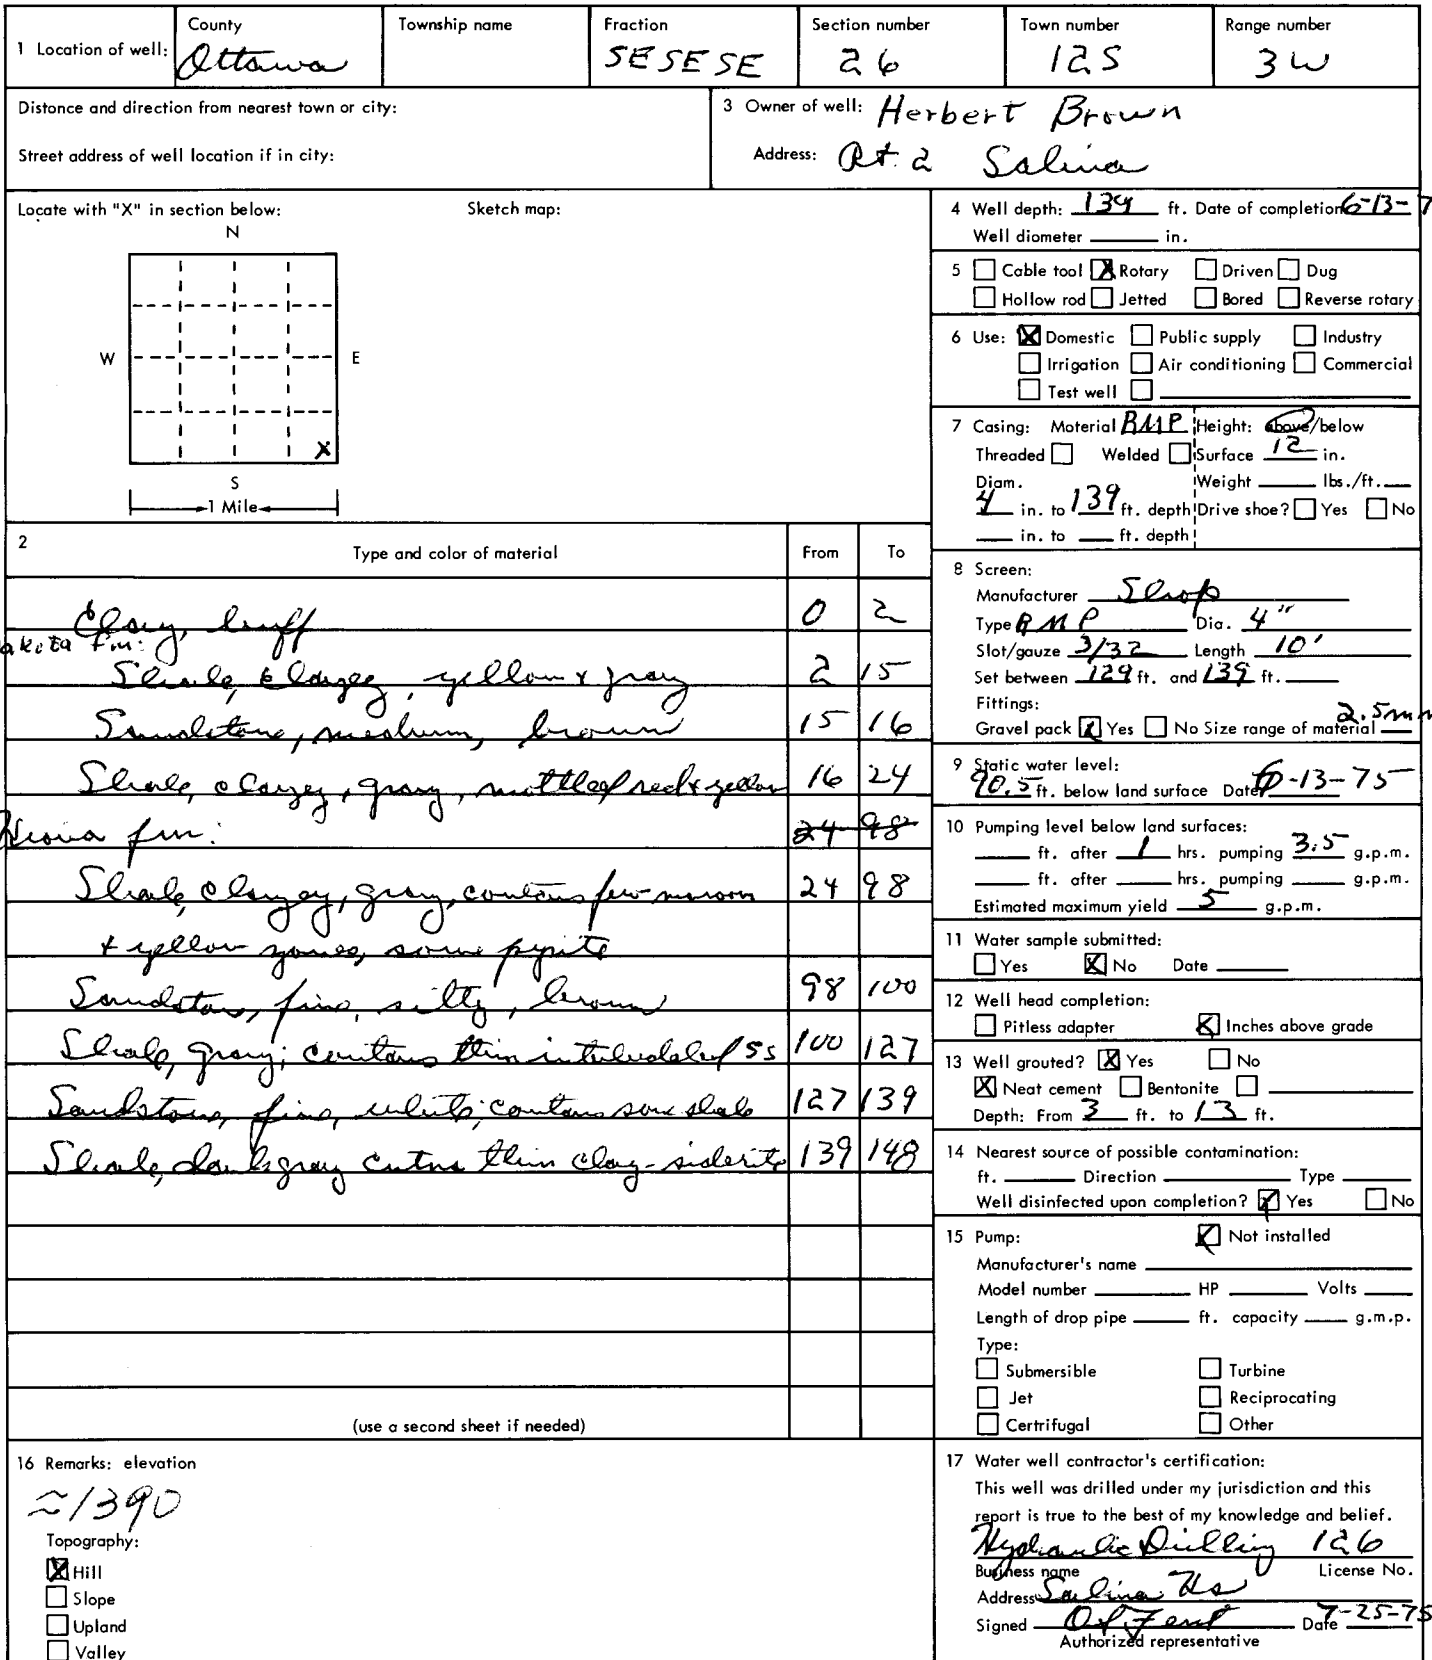 1 Location of well: County Ottawa Township name Fraction SE SE SE Section number 26 Town number 12S Range number 3W
Distonce and direction from nearest town or city:
Street address of well location if in city:
3 Owner of well: Herbert Brown
Address: Rt. 2 Salina
Locate with "X" in section below: Sketch map:
N
W E
X
S
1 Mile
4 Well depth: 139 ft. Date of completion 6-13-7
Well diometer in.
5 Cable tool X Rotary Driven Dug
Hollow rod Jetted Bored Reverse rotary
6 Use: X Domestic Public supply Industry
Irrigation Air conditioning Commercial
Test well
7 Casing: Material RMP Height: above/below
Threaded Welded Surface 12 in.
Diam. Weight lbs./ft.
4 in. to 139 ft. depth Drive shoe? Yes No
in. to ft. depth
2 Type and color of material From To
Clay, buff 0 2
akota fm:
Shale, clayey, yellow & gray 2 15
Sandstone, medium, brown 15 16
Shale, clayey, gray, mottled red & yellow 16 24
Kiowa fm: 24 98
Shale, clayey, gray, contains few maroon 24 98
& yellow zones, some pyrite
Sandstone, fine, silty, brown 98 100
Shale, gray; contains thin interbedded ss 100 127
Sandstone, fine, white; contains some shale 127 139
Shale, dark gray cntns thin clay-siderite 139 148
(use a second sheet if needed)
8 Screen:
Manufacturer Shop
Type RMP Dia. 4"
Slot/gauze 3/32 Length 10'
Set between 129 ft. and 139 ft.
Fittings:
Gravel pack X Yes No Size range of material 2.5mm
9 Static water level:
90.5 ft. below land surface Date 6-13-75
10 Pumping level below land surfaces:
ft. after 1 hrs. pumping 3.5 g.p.m.
ft. after hrs. pumping g.p.m.
Estimated maximum yield 5 g.p.m.
11 Water sample submitted:
Yes X No Date
12 Well head completion:
Pitless adapter X Inches above grade
13 Well grouted? X Yes No
X Neat cement Bentonite
Depth: From 3 ft. to 13 ft.
14 Nearest source of possible contamination:
ft. Direction Type
Well disinfected upon completion? X Yes No
15 Pump: X Not installed
Manufacturer's name
Model number HP Volts
Length of drop pipe ft. capacity g.m.p.
Type:
Submersible Turbine
Jet Reciprocating
Certrifugal Other
16 Remarks: elevation
≈1390
Topography:
X Hill
Slope
Upland
Valley
17 Water well contractor's certification:
This well was drilled under my jurisdiction and this
report is true to the best of my knowledge and belief.
Hydraulic Drilling 126
Business name License No.
Address Salina Ks
Signed O J Fent Date 7-25-75
Authorized representative